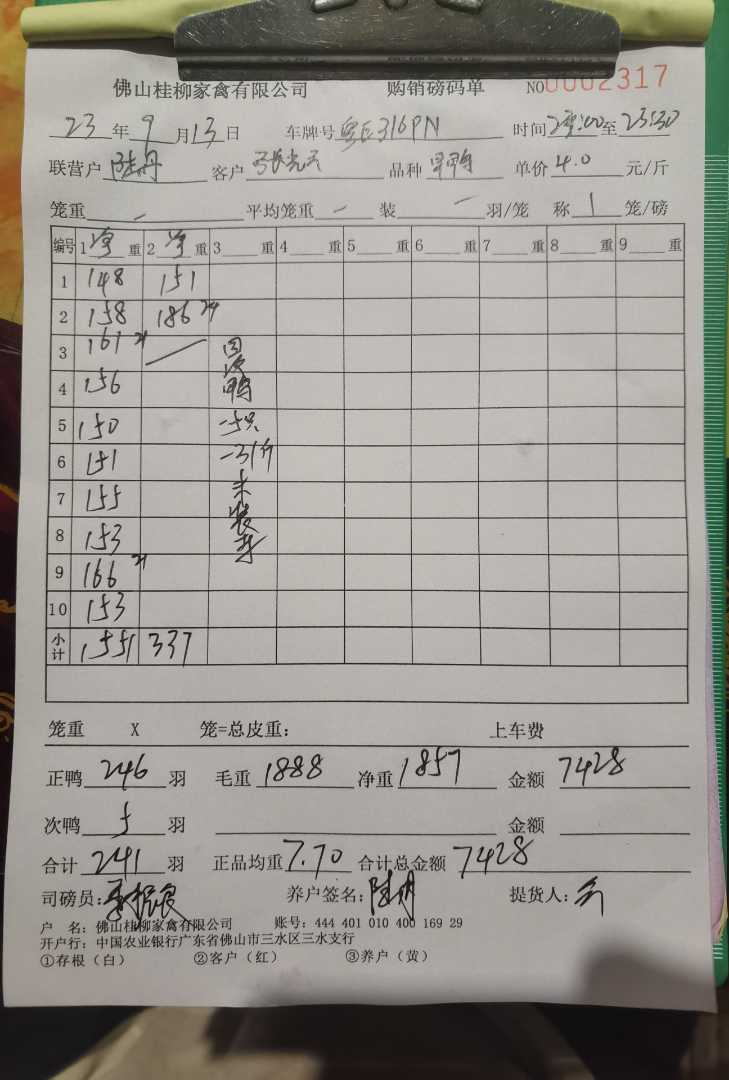 佛山桂柳家禽有限公司 购销磅码单 NO 0002317
23 年 9 月 13 日 车牌号 粤E316PN 时间 至 23:30
联营户 陆丹 客户 品种 单价 4.0 元/斤
笼重 - 平均笼重 - 装 - 羽/笼 称 1 笼/磅
编号 1 净 重 2 净 重 3 重 4 重 5 重 6 重 7 重 8 重 9 重
1 148 151
2 158 186 24
3 161 21
4 156 鸭
5 150 -5只
6 151 -31斤
7 155 未
8 153 装
9 166 21 车
10 153
小计 1551 337
笼重 X 笼=总皮重: 上车费
正鸭 246 羽 毛重 1888 净重 1857 金额 7428
次鸭 5 羽 金额
合计 241 羽 正品均重 7.70 合计总金额 7428
司磅员: 养户签名: 陆丹 提货人:
户 名: 佛山桂柳家禽有限公司 账号: 444 401 010 400 169 29
开户行: 中国农业银行广东省佛山市三水区三水支行
①存根（白） ②客户（红） ③养户（黄）